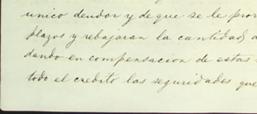 unico deudor y de que se le pror
plazos y rebajaran la cantidad, a
dando en compensacion de estas
todo el credito las seguridades que